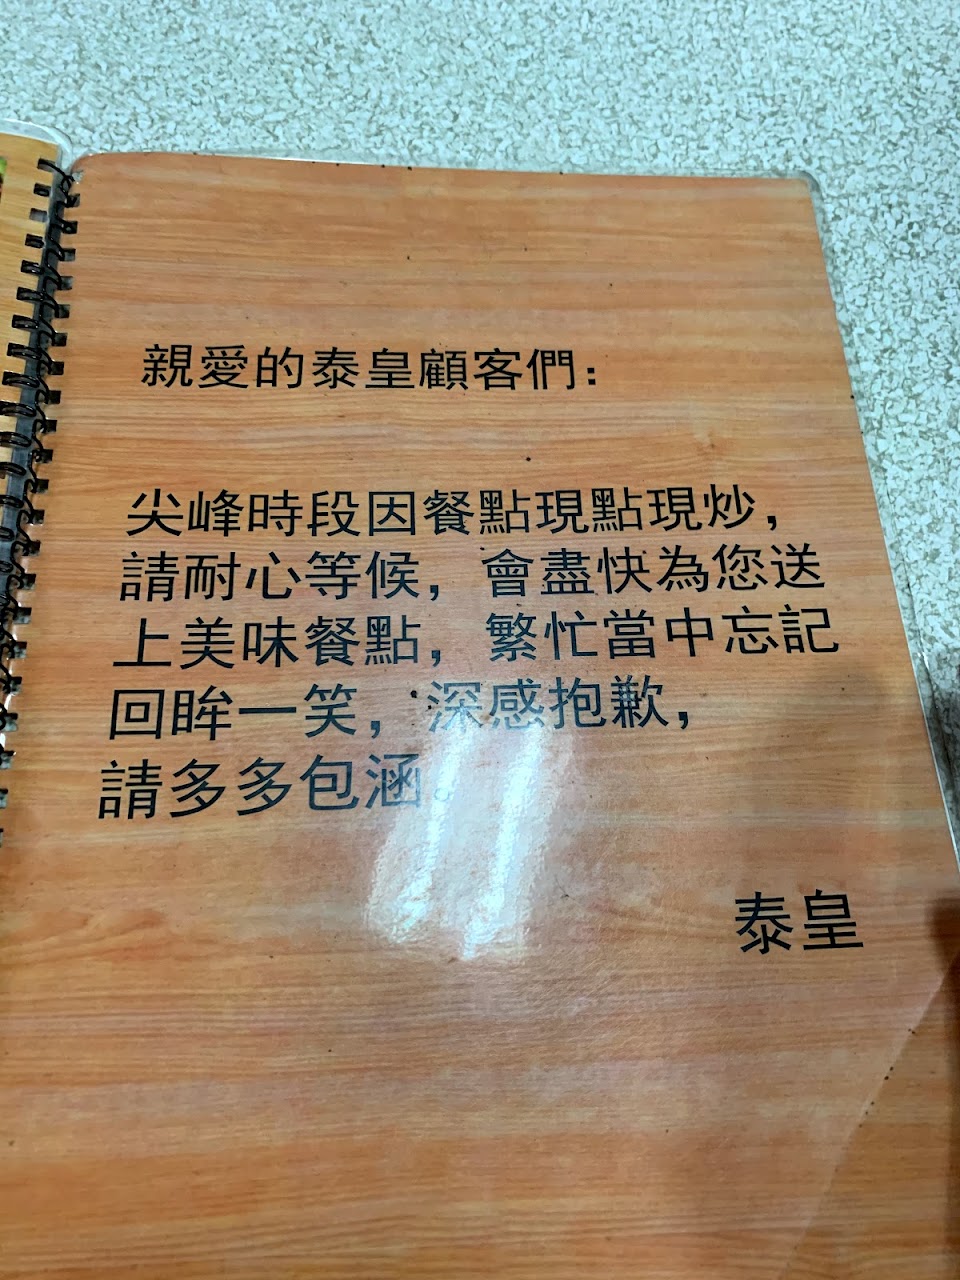 親愛的泰皇顧客們：
尖峰時段因餐點現點現炒，
請耐心等候，會盡快為您送
上美味餐點，繁忙當中忘記
回眸一笑，深感抱歉，
請多多包涵。
泰皇